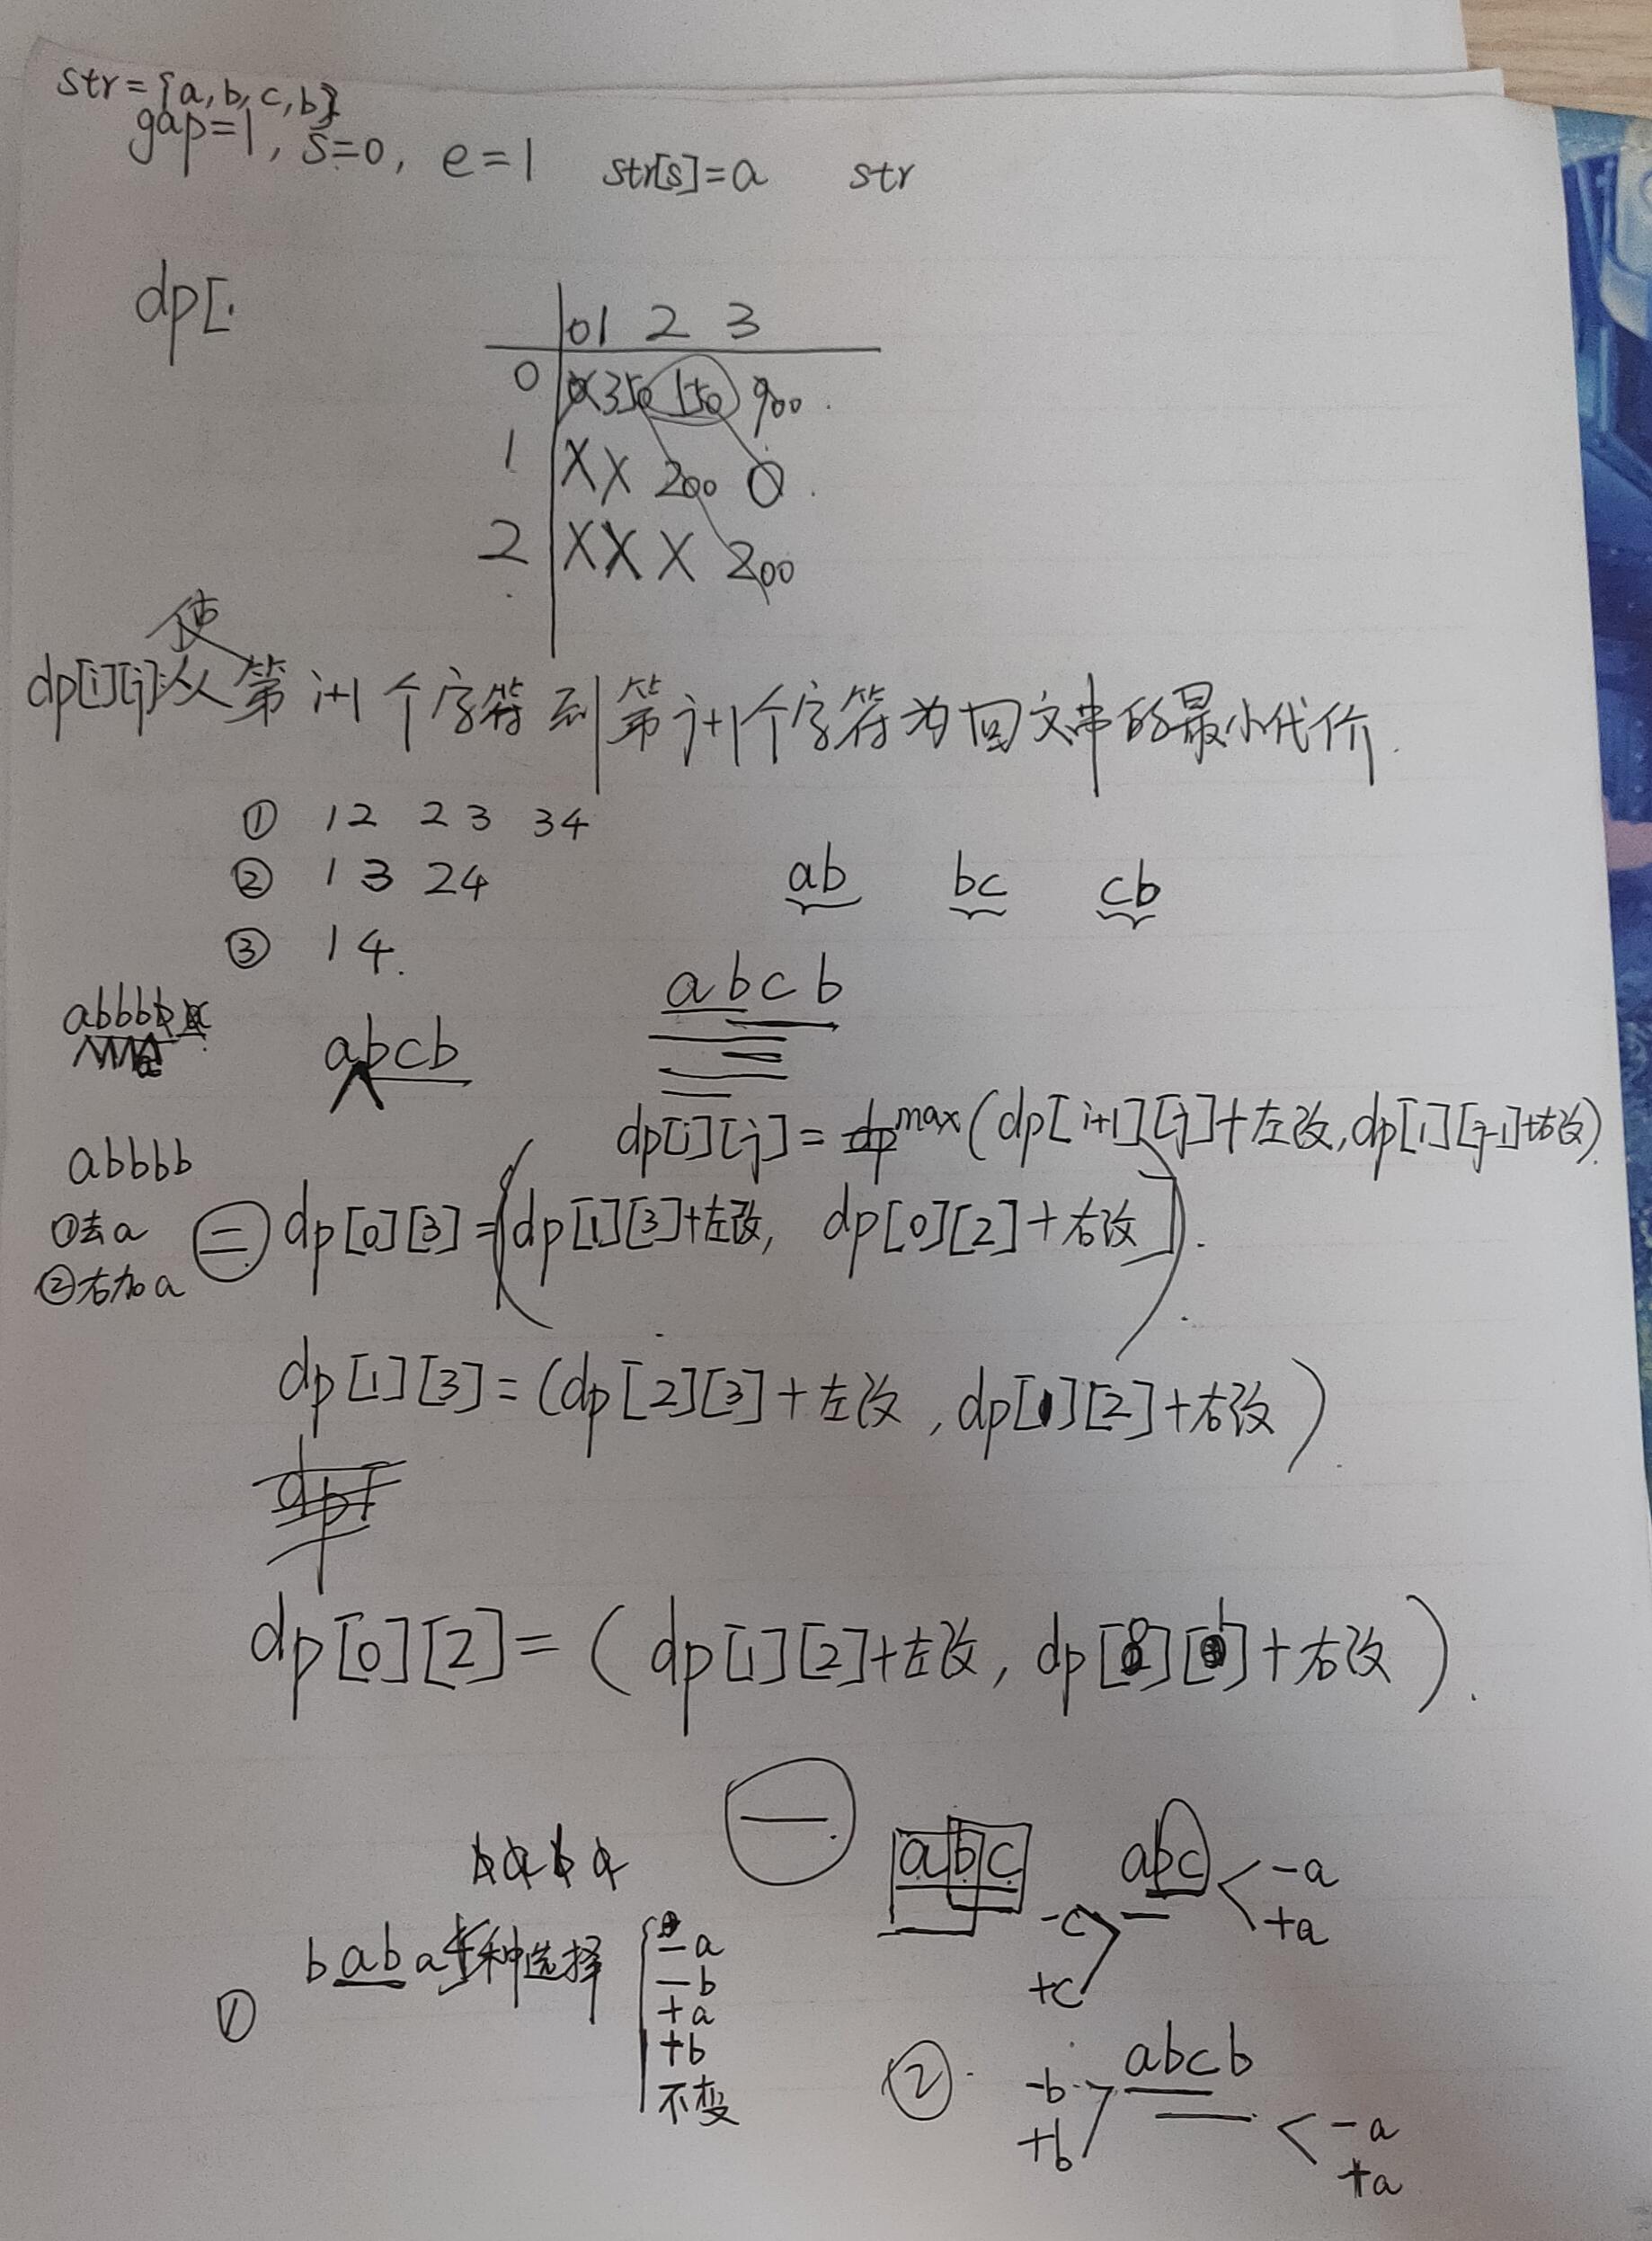 str={a,b,c,b}
gap=1, s=0, e=1 str[s]=a str
dp[.
0 1 2 3
0 0 350 150 900.
1 X X 200 0.
2 X X X 200
使
dp[i][j]:从第i+1个字符到第j+1个字符为回文串的最小代价.
① 12 23 34
② 13 24
ab bc cb
③ 14.
abcb
abbbb
abcb
dp[i][j]=max(dp[i+1][j]+左改,dp[i][j-1]+右改).
abbbb
①去a
②右加a
㊁ dp[0][3]=(dp[1][3]+左改, dp[0][2]+右改).
dp[1][3]=(dp[2][3]+左改,dp[1][2]+右改).
dp[
dp[0][2]=(dp[1][2]+左改,dp[0][1]+右改).
㊀
baba
abc
abc
-a
+a
-c
+c
① baba 5种选择
-a
-b
+a
+b
不变
② abcb
-b
+b
-a
+a